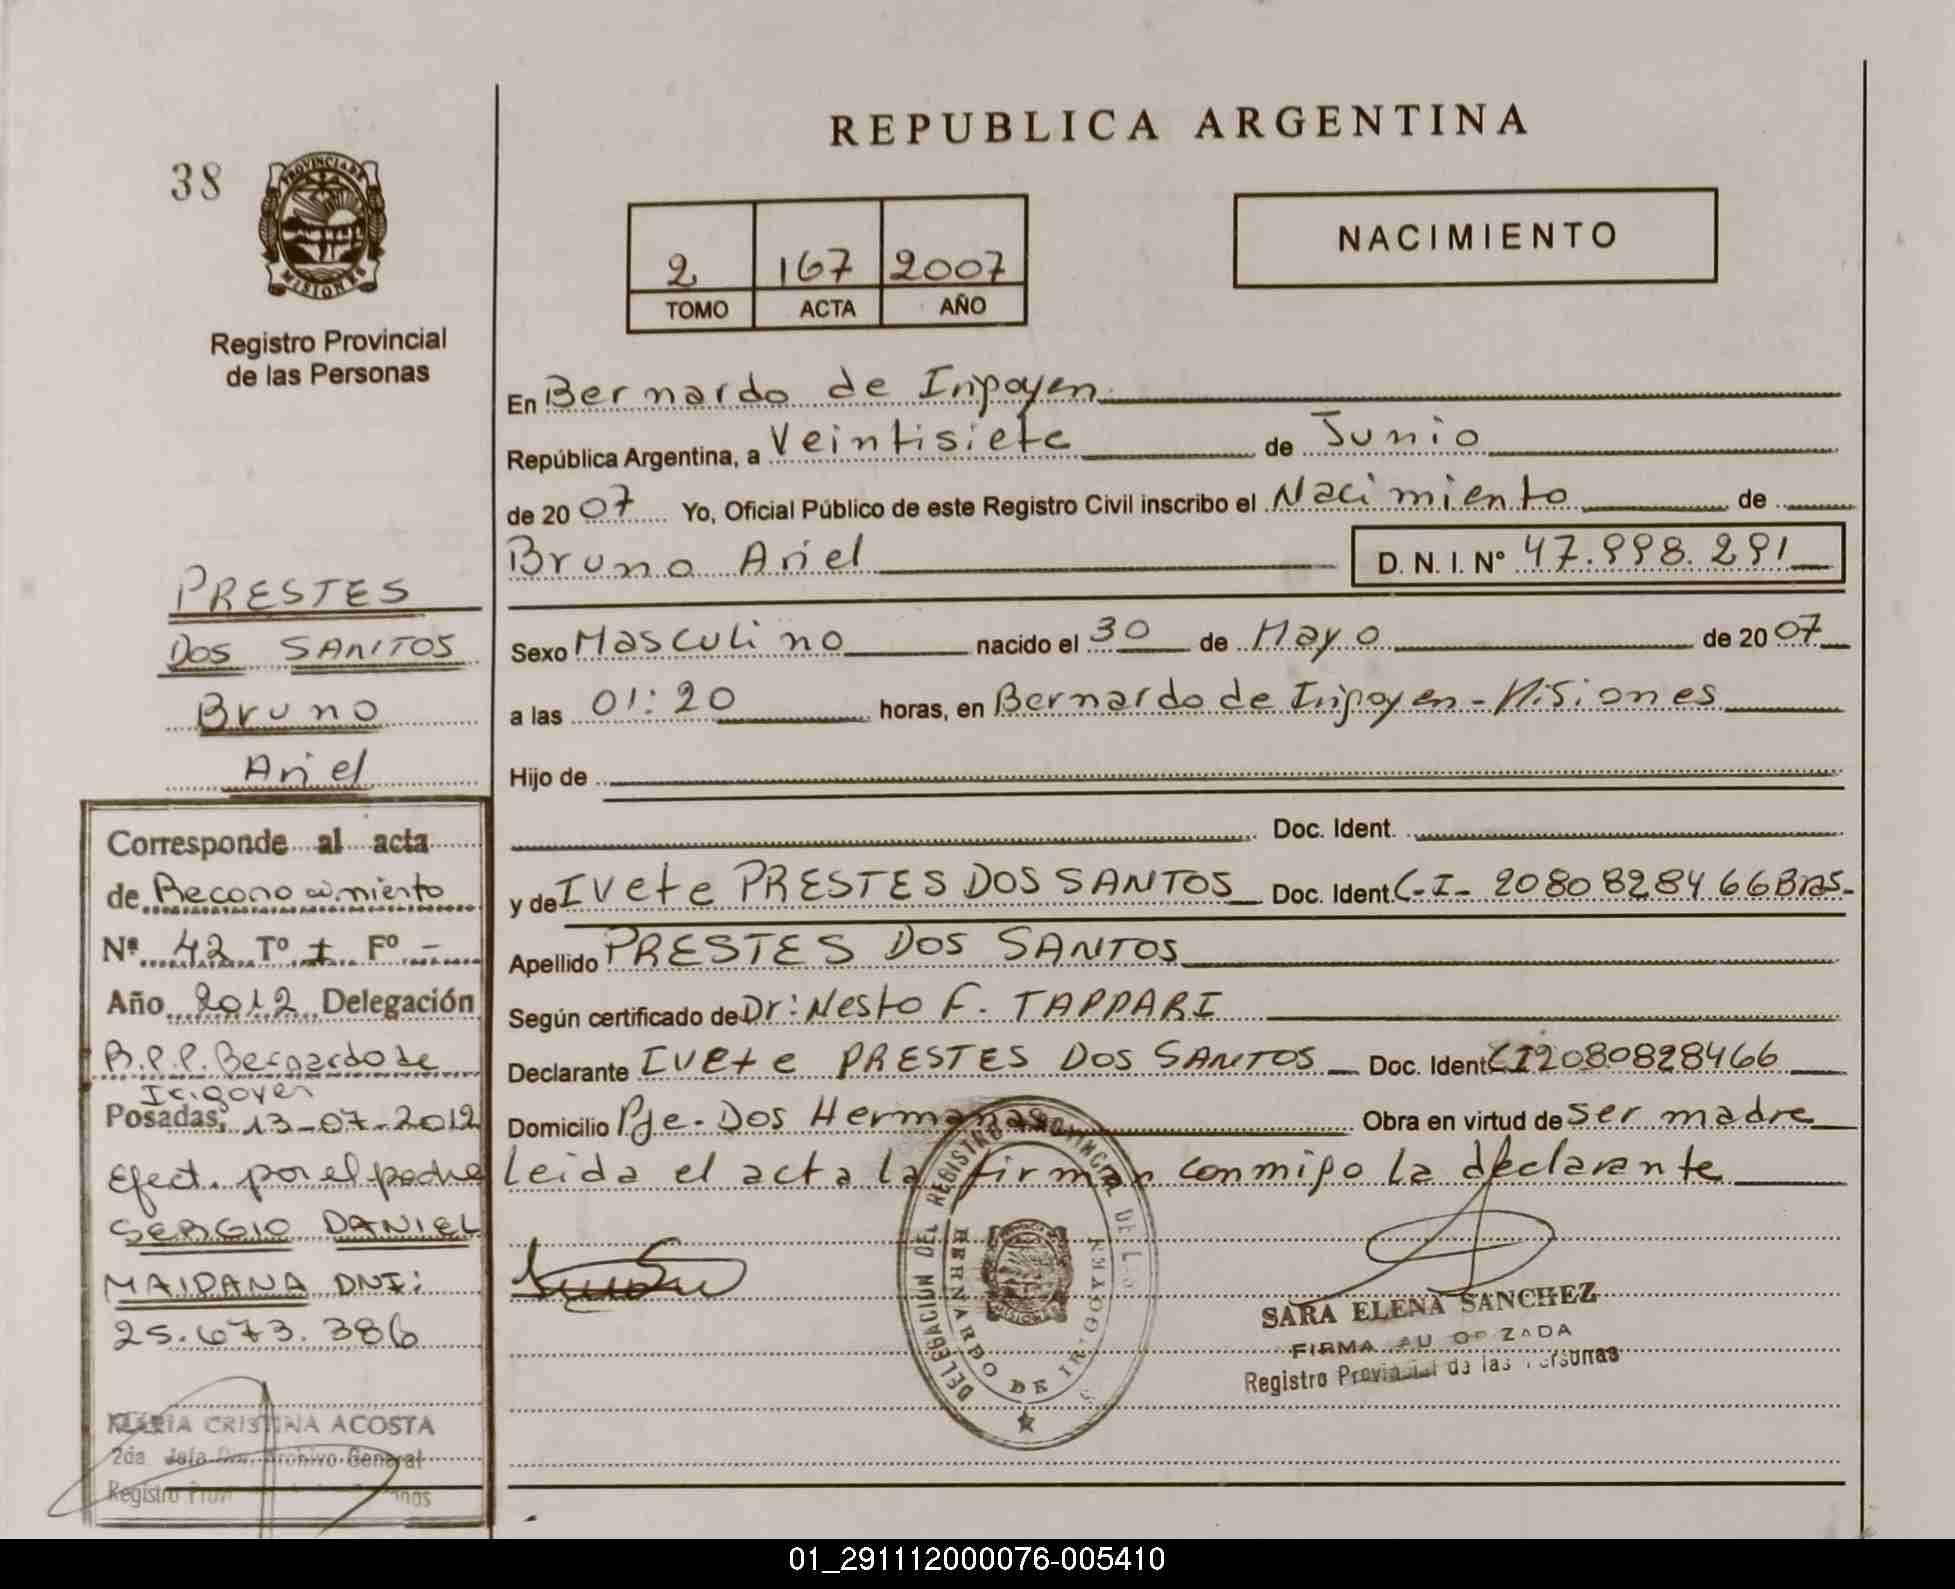 REPUBLICA ARGENTINA
38
PROVINCIA DE
MISIONES
Registro Provincial
de las Personas
2 167 2007
TOMO ACTA AÑO
NACIMIENTO
En Bernardo de Irigoyen
República Argentina, a Veintisiete de Junio
de 2007 Yo, Oficial Público de este Registro Civil inscribo el Nacimiento de
Bruno Ariel D. N. I. Nº 47.998.291
Sexo Masculino nacido el 30 de Mayo de 2007
a las 01:20 horas, en Bernardo de Irigoyen - Misiones
Hijo de
Doc. Ident.
y de Ivete PRESTES DOS SANTOS Doc. Ident. C-I- 2080828466 Bras-
Apellido PRESTES DOS SANTOS
Según certificado de Dr: Nesto F. TAPPARI
Declarante Ivete PRESTES DOS SANTOS Doc. Ident CI2080828466
Domicilio Pje- Dos Hermanas Obra en virtud de ser madre
leida el acta la firman conmigo la declarante
DELEGACION DEL REGISTRO PROVINCIAL DE L
BERNARDO DE IRIGOYEN
SARA ELENA SANCHEZ
FIRMA AUTORIZADA
Registro Provincial de las Personas
PRESTES
DOS SANTOS
Bruno
Ariel
Corresponde al acta
de Reconocimiento
Nº 42 Tº 1 Fº -
Año 2012 Delegación
R.P.P. Bernardo de
Irigoyen
Posadas, 13-07-2012
Efect. por el padre
SERGIO DANIEL
MAIDANA DNI:
25.673.386
MARIA CRISTINA ACOSTA
2da. Jefa Div. Archivo General
Registro Prov
01_291112000076-005410